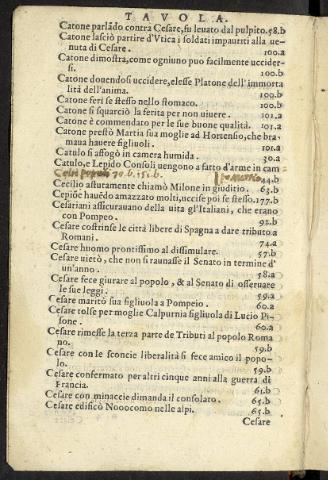 TAVOLA.
Catone parlãdo contra Cesare, fu leuato dal pulpito. 58.b
Catone lasciò partire d'Vtica i soldati impauriti alla ue-
nuta di Cesare. 100.a
Catone dimostra, come ogniuno puo facilmente uccider-
si. 100.b
Catone douendosi uccidere, elesse Platone dell'immorta
lità dell'anima. 100.b
Catone ferì se stesso nello stomaco. 100.b
Catone si squarciò la ferita per non uiuere. 101.a
Catone è commendato per le sue buone qualità. 101.a
Catone prestò Martia sua moglie ad Hortensio, che bra-
maua hauere figliuoli. 101.a
Catulo si affogò in camera humida. 30.a
Catulo, e Lepido Consoli uengono a fatto d'arme in cam
44.b
Cecilio astutamente chiamò Milone in giuditio. 63.b
Cepiõe hauẽdo amazzato molti, uccise poi se stesso. 177.b
Cesariani assicurauano della uita gl'Italiani, che erano
con Pompeo. 92.b
Cesare costrinse le città libere di Spagna a dare tributo a
Romani. 74.a
Cesare huomo prontissimo al dissimulare. 57.b
Cesare uietò, che non si raunasse il Senato in termine d'
un'anno. 58.a
Cesare fece giurare al popolo, & al Senato di osseruare
le sue leggi. 59.a
Cesare maritò sua figliuola a Pompeio. 60.a
Cesare tolse per moglie Calpurnia figliuola di Lucio Pi-
sone. 60.a
Cesare rimesse la terza parte de Tributi al popolo Roma
no. 59.b
Cesare con le sconcie liberalità si fece amico il popo-
lo. 59.b
Cesare confermato per altri cinque anni alla guerra di
Francia. 61.b
Cesare con minaccie dimanda il consolato. 65.b
Cesare edificò Nouocomo nelle alpi. 65.b
Cesare